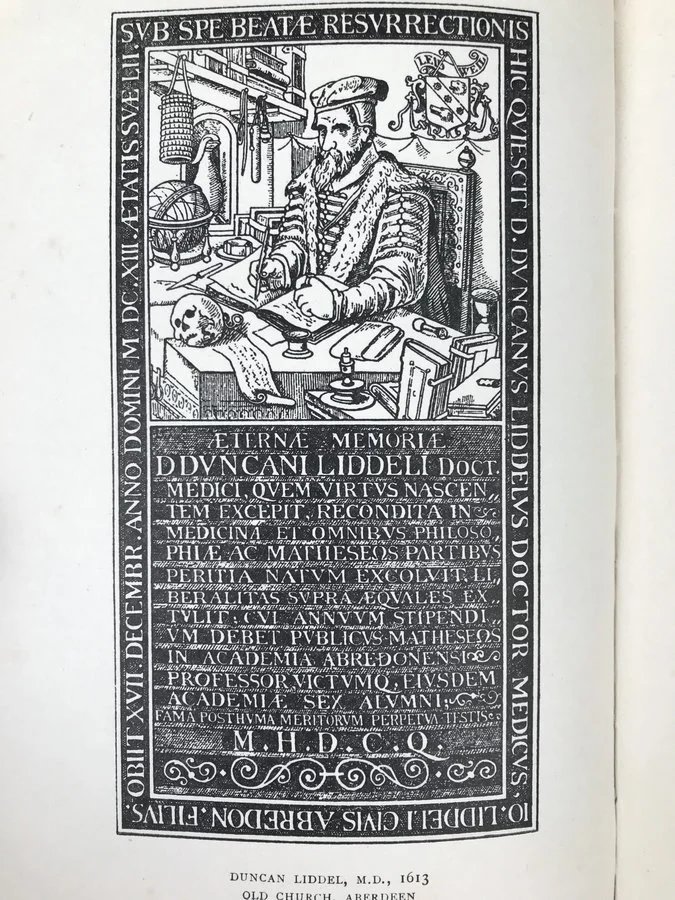 SVB SPE BEATÆ RESVRRECTIONIS
HIC QVIESCIT D. DVNCANVS LIDDELVS DOCTOR MEDICVS
IO. LIDDELI CIVIS ABREDON. FILIVS.
OBIIT XVII. DECEMBR. ANNO DOMINI M. DC. XIII. ÆTATIS SVÆ LII.
ÆTERNÆ MEMORIÆ
D DVNCANI LIDDELI DOCT.
MEDICI, QVEM VIRTVS NASCEN„
TEM EXCEPIT, RECONDITA IN
MEDICINA ET OMNIBVS PHILOSO„
PHIÆ AC MATHESEOS PARTIBVS
PERITIA NATVM EXCOLVIT, LI„
BERALITAS SVPRA ÆQVALES EX„
TVLIT: CVI ANNVVM STIPENDI„
VM DEBET PVBLICVS MATHESEOS
IN ACADEMIA ABREDONENSI
PROFESSOR, VICTVMQ, EIVSDEM
ACADEMIÆ SEX ALVMNI;
FAMA POSTHVMA MERITORVM PERPETVA TESTIS
M. H. D. C. Q.
DUNCAN LIDDEL, M.D., 1613
OLD CHURCH, ABERDEEN